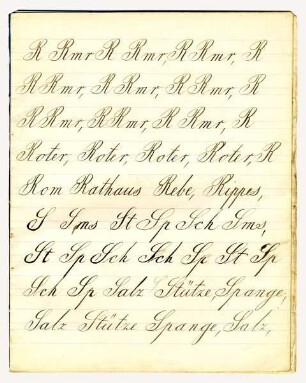 R Rmr R Rmr, R Rmr, R
R Rmr, R Rmr, R Rmr, R
R Rmr, R Rmr, R Rmr, R
Roter, Roter, Roter, Roter, R
Rom Rathaus Rebe, Rippes,
S Sms St Sp Sch Sms,
St Sp Sch Sch Sp St Sp
Sch Sp Salz Stütze, Spange,
Salz Stütze Spange, Salz,